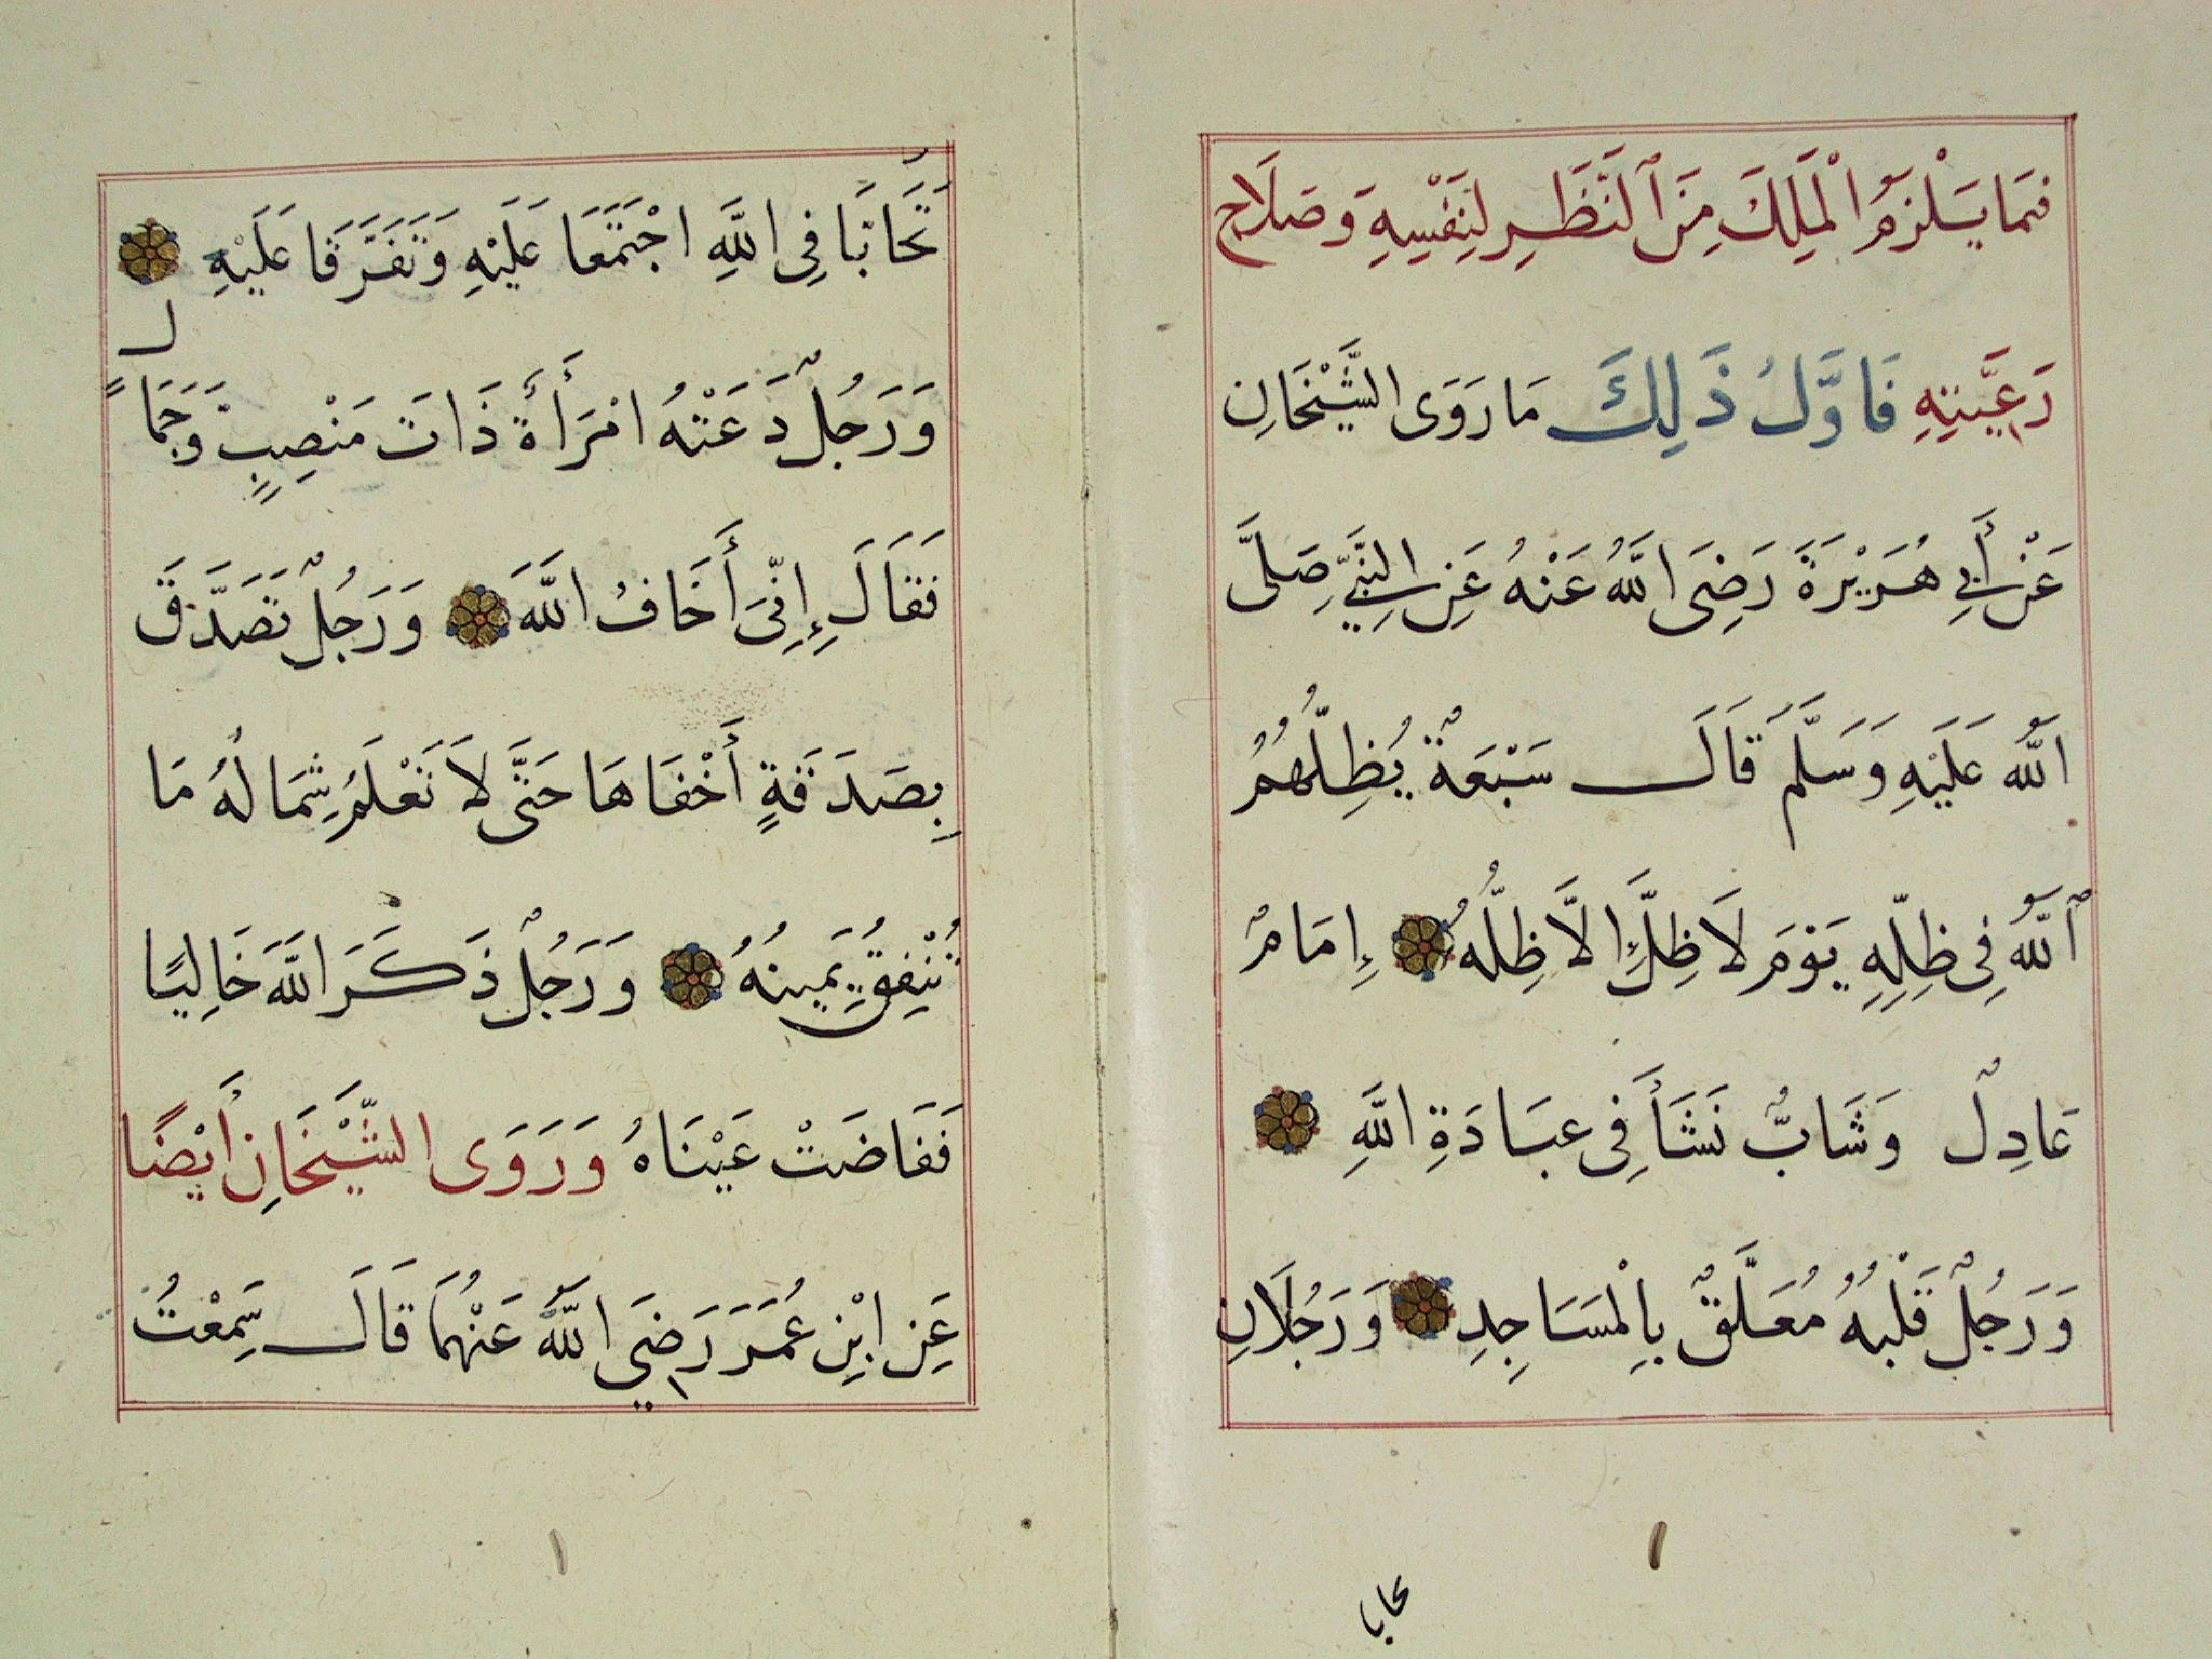 فِيمَا يَسْلْزَمُ الْمَلِكَ مِنَ ٱلنَّظَرِ لِنَفْسِهِ وَصَلَاحِ
رَعِيَّتِهِ فَاوَّلُ ذَلِكَ مَا رَوَى الشَّيْخَانِ
عَنْ أَبِي هُرَيْرَةَ رَضِيَ اللَّهُ عَنْهُ عَنِ النَّبِيِّ صَلَّى
اللَّهُ عَلَيْهِ وَسَلَّمَ قَالَ سَبْعَةٌ يُظِلُّهُمُ
ٱللَّهُ فِي ظِلِّهِ يَوْمَ لَا ظِلَّ إِلَّا ظِلُّهُ إِمَامٌ
عَادِلٌ وَشَابٌّ نَشَأَ فِي عِبَادَةِ اللَّهِ
وَرَجُلٌ قَلْبُهُ مُعَلَّقٌ بِالْمَسَاجِدِ وَرَجُلَانِ
١
تحابا
تَحَابَّا فِي اللَّهِ اجْتَمَعَا عَلَيْهِ وَتَفَرَّقَا عَلَيْهِ
وَرَجُلٌ دَعَتْهُ امْرَأَةٌ ذَاتَ مَنْصِبٍ وَجَمَالٍ
فَقَالَ إِنِّيَ أَخَافُ اللَّهَ وَرَجُلٌ تَصَدَّقَ
بِصَدَقَةٍ أَخْفَاهَا حَتَّى لَا تَعْلَمُ شِمَالُهُ مَا
تُنْفِقُ يَمِينُهُ وَرَجُلٌ ذَكَرَ اللَّهَ خَالِيًا
فَفَاضَتْ عَيْنَاهُ وَرَوَى الشَّيْخَانِ أَيْضًا
عَنِ ابْنِ عُمَرَ رَضِيَ اللَّهُ عَنْهُمَا قَالَ سَمِعْتُ
١